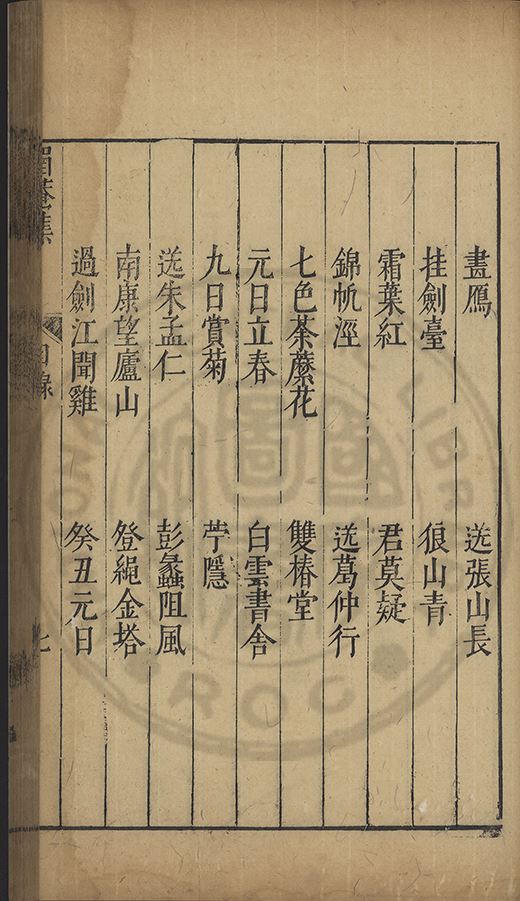 畫鴈 送張山長
挂劍臺 狼山青
霜葉紅 君莫疑
錦帆涇 送葛仲行
七色荼蘼花 雙椿堂
元日立春 白雲書舍
九日賞菊 苧隱
送朱孟仁 彭蠡阻風
南康望廬山 登繩金塔
過劍江聞雞 癸丑元日
菴集 目錄 七